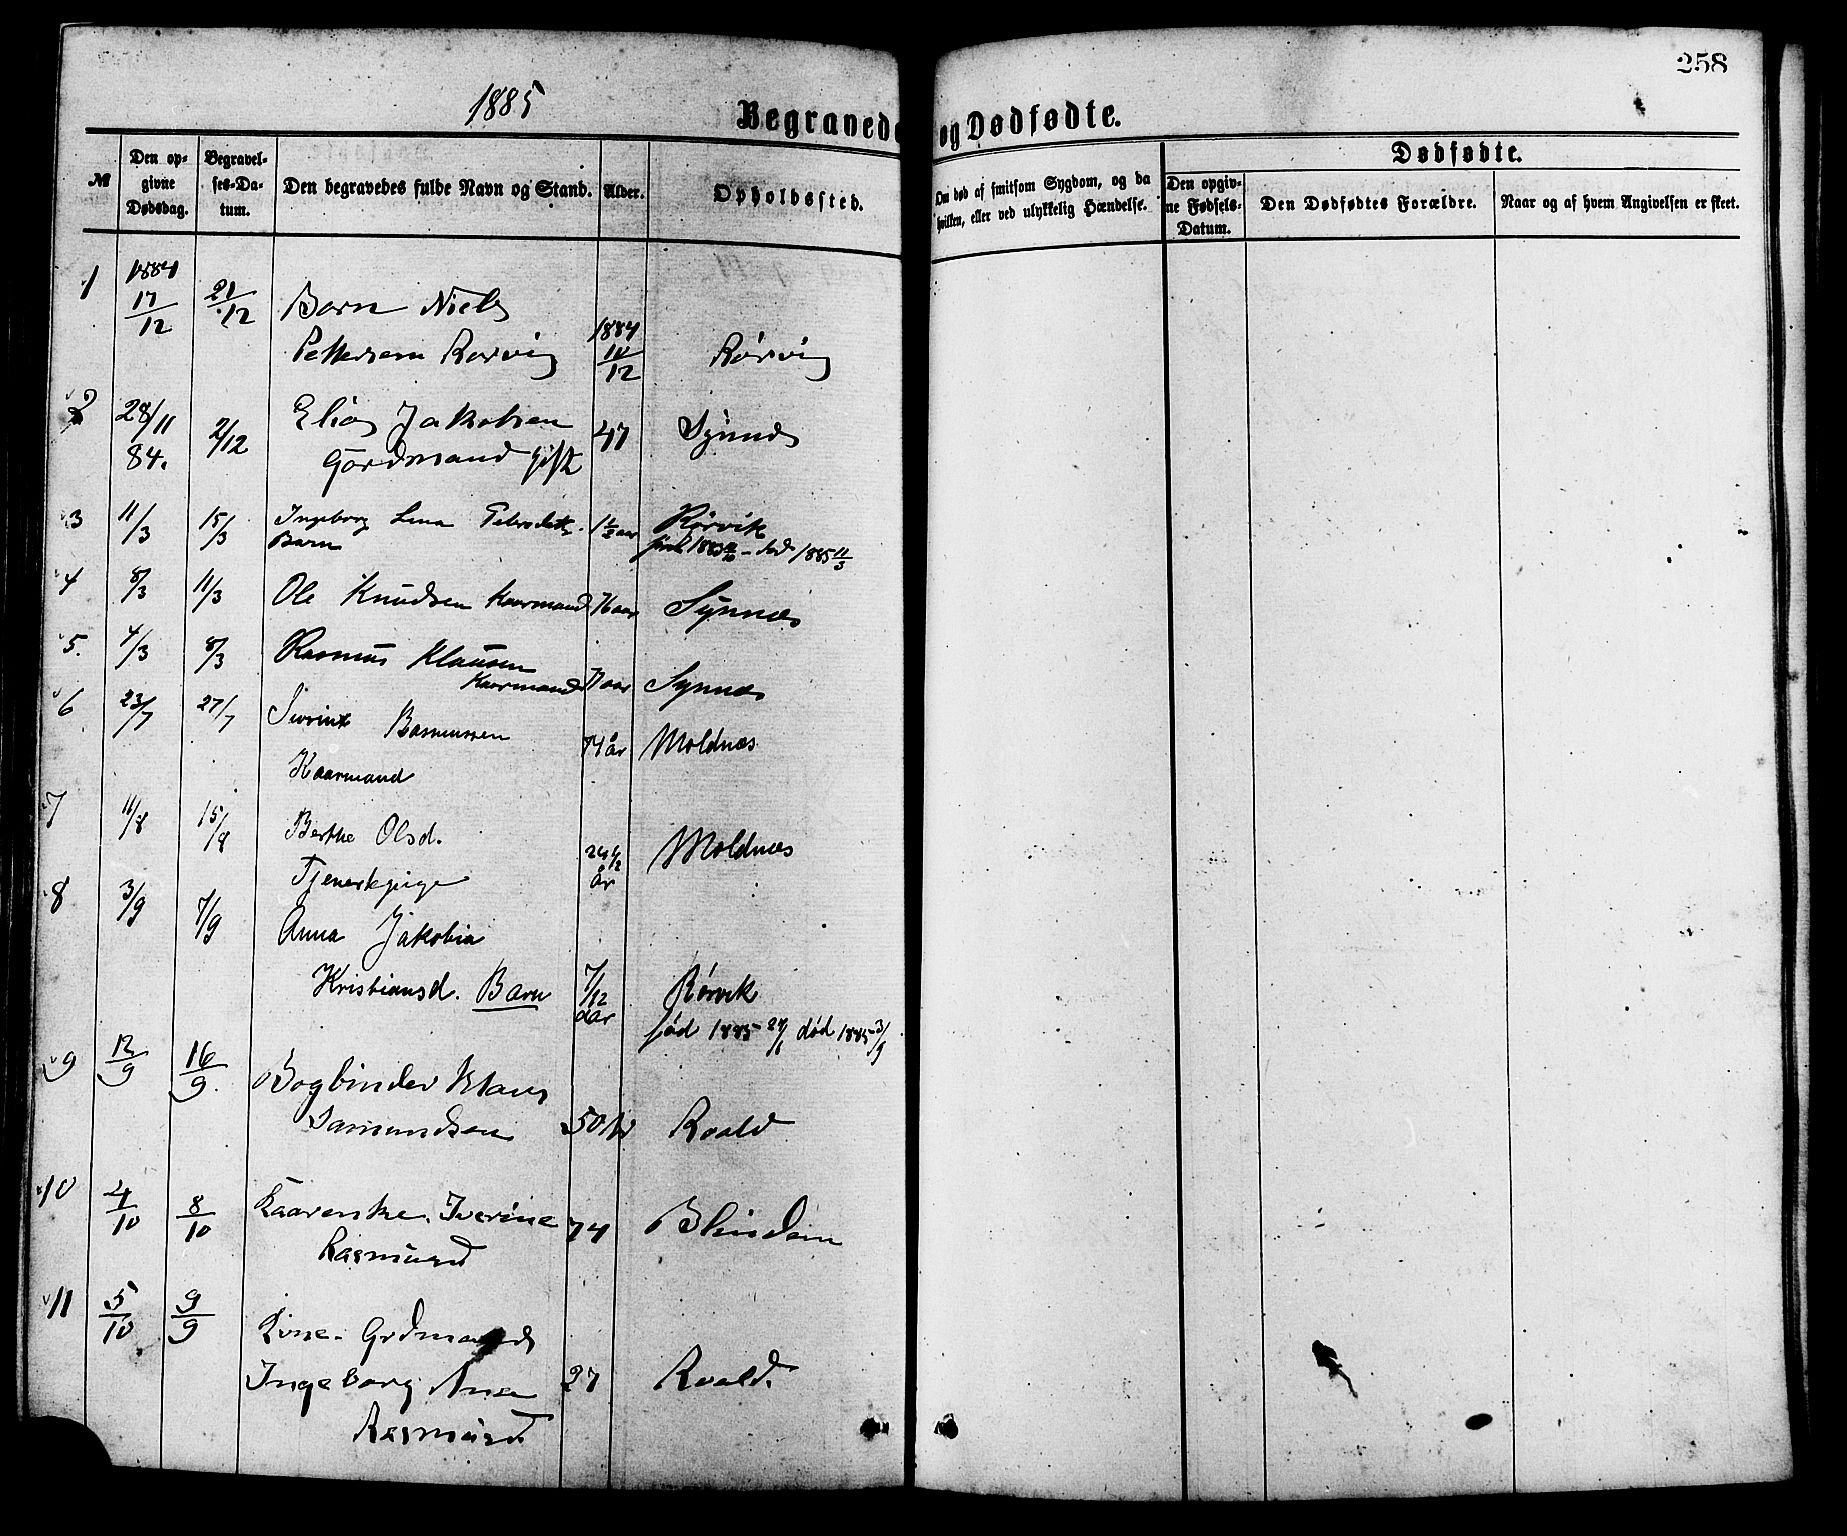 258
1885
Begravede og Dødfødte.
Dødfødte.
№
Den op-
givne
Dødsdag.
Begravel-
ses-Da-
tum.
Den begravedes fulde Navn og Stand.
Alder.
Opholdssted.
Om død af smitsom Sygdom, og da
hvilken, eller ved ulykkelig Hændelse.
Den opgiv-
ne Fødsels-
Datum.
Den Dødfødtes Forældre.
Naar og af hvem Angivelsen er skeet.
1 1884 17/12 21/12 Barn Niels
Pettersen Rørvig 1884 10/12 Rørvig
2 28/11 84. 2/12 Elias Jakobsen 47 Synnes
Gordmand gift
3 11/3 15/3 Ingeborg Lena 1½ aar Rørvik
Barn død 1885 11/3
4 8/3 11/3 Ole Knudsen Kaarmand 76 aar Synnæs
5. 4/3 8/3 Rasmus Klausen
Kaarmand aar Synnæs
6 23/7 27/7 Rasmussen
Kaarmand 74 år Moldnæs
7 11/8 15/8 Berthe Olsd.
Tjenestepige 24½ år Moldnæs
8 3/9 7/9 Anna Jakobia
Kristiansd. Barn 7/12 aar Rørvik
fød 1885 død 1885 3/9
9 12/9 16/9. Bogbinder Klaus
Samundsen 50 Roald
10 4/10 8/10 Kaarenke Iverine 74 Blindem
Rasmusd
11 5/10 9/9 Kone. Grdmands
Ingeborg Ana 27 Roald.
Rasmusd.